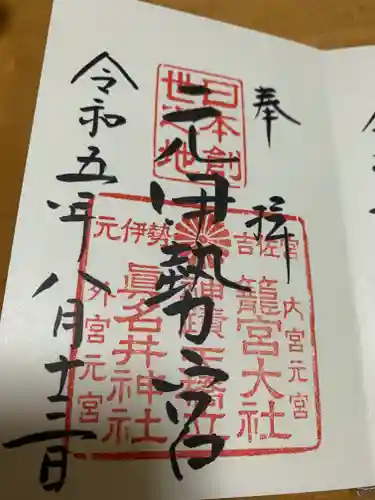 奉拝
日本創
世之地
元伊勢宮
吉佐宮
元伊勢
内宮元宮
籠宮大社
眞名井神社
外宮元宮
令和五年八月十三日